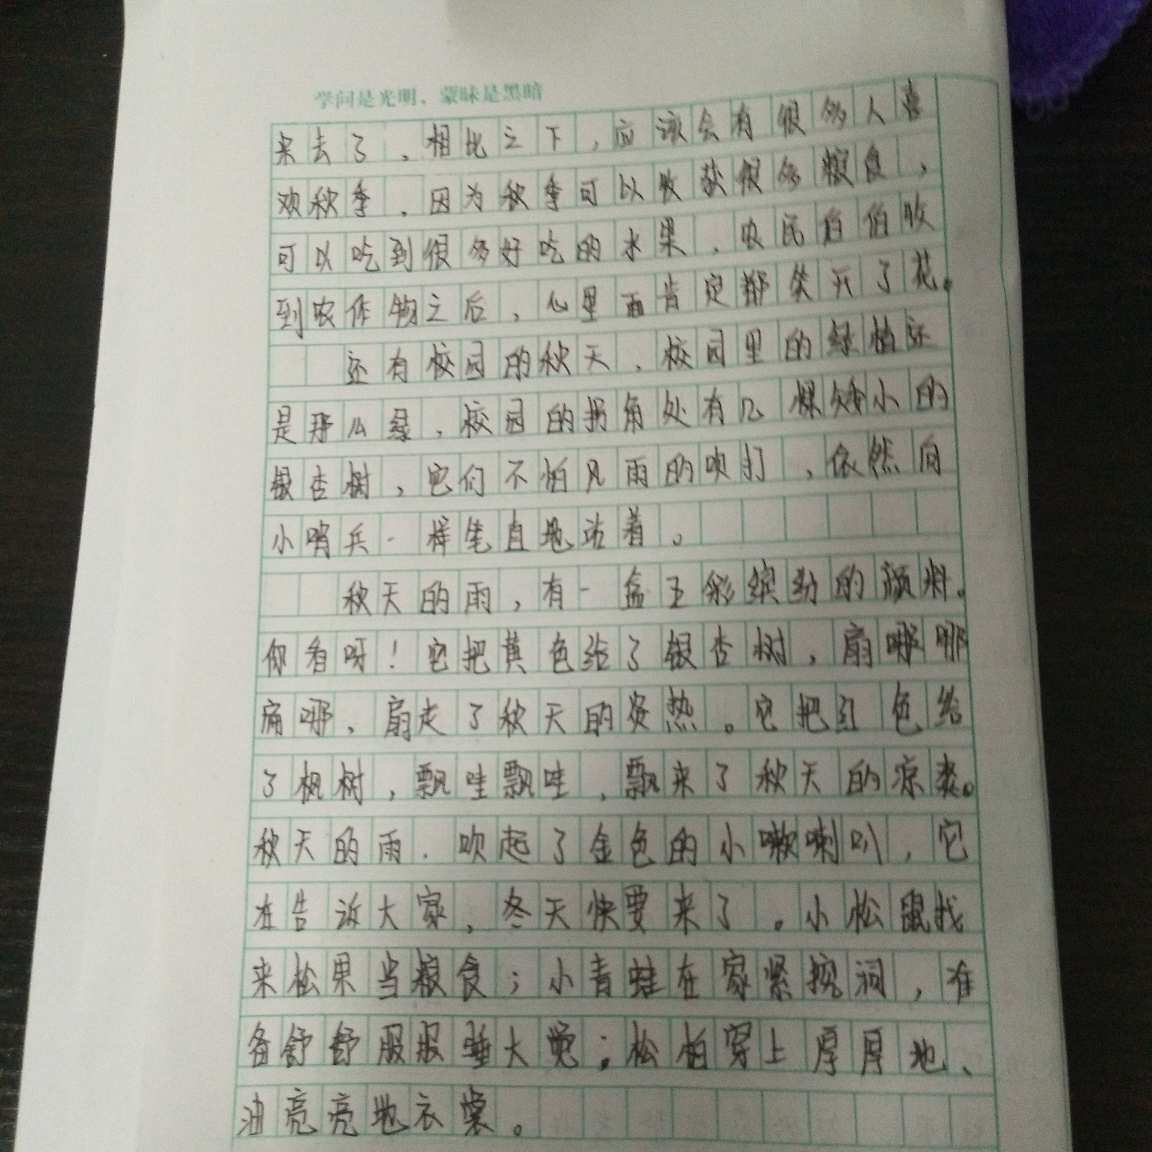 学问是光明、蒙昧是黑暗
来去了，相比之下，应该会有很多人喜
欢秋季，因为秋季可以收获很多粮食，
可以吃到很多好吃的水果，农民伯伯收
到农作物之后，心里面肯定都笑开了花。
还有校园的秋天，校园里的绿植还
是那么绿，校园的拐角处有几棵矮小的
银杏树，它们不怕风雨的吹打，依然向
小哨兵一样笔直地站着。
秋天的雨，有一盒五彩缤纷的颜料。
你看呀！它把黄色给了银杏树，扇哪哪
扇哪，扇走了秋天的炎热。它把红色给
了枫树，飘哇飘哇，飘来了秋天的凉爽。
秋天的雨，吹起了金色的小喇叭，它
在告诉大家，冬天快要来了。小松鼠找
来松果当粮食；小青蛙在家紧挖洞，准
备舒舒服服睡大觉；松柏穿上厚厚地、
油亮亮地衣裳。